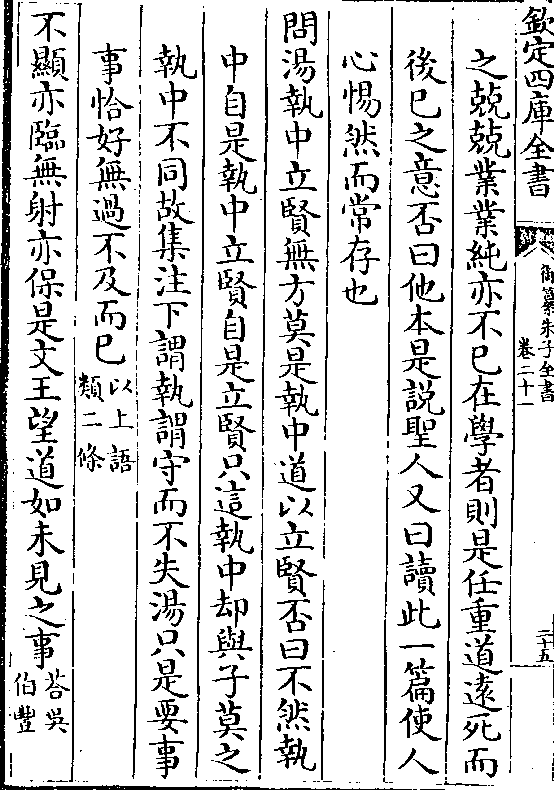 欽定四庫全書
御纂朱子全書
卷二十一
二十五
之兢兢業業純亦不已在學者則是任重道遠死而
後已之意否曰他本是說聖人又曰讀此一篇使人
心惕然而常存也
問湯執中立賢無方莫是執中道以立賢否曰不然執
中自是執中立賢自是立賢只這執中却與子莫之
執中不同故集注下謂執謂守而不失湯只是要事
事恰好無過不及而已以上語類二條
不顯亦臨無射亦保是文王望道如未見之事荅吳伯豐